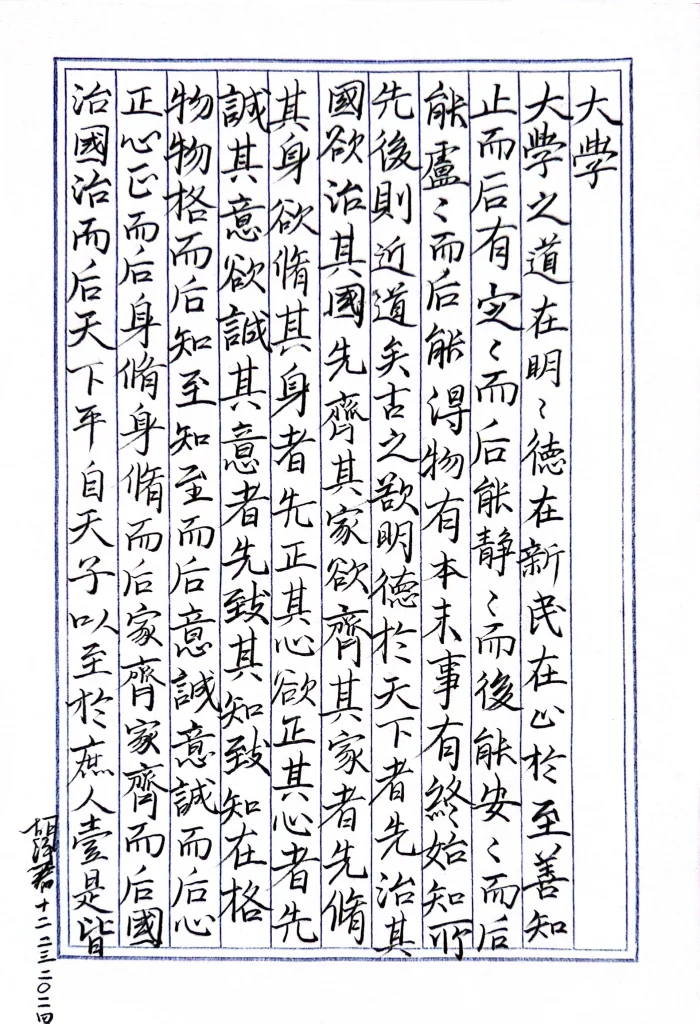 大學
大學之道在明〻德在新民在止於至善知
止而后有定〻而后能靜〻而後能安〻而后
能慮〻而后能得物有本末事有終始知所
先後則近道矣古之欲明德於天下者先治其
國欲治其國先齊其家欲齊其家者先脩
其身欲脩其身者先正其心欲正其心者先
誠其意欲誠其意者先致其知致知在格
物物格而后知至知至而后意誠意誠而后心
正心正而后身脩身脩而后家齊家齊而后國
治國治而后天下平自天子以至於庶人壹是皆
十二二三二〇二四